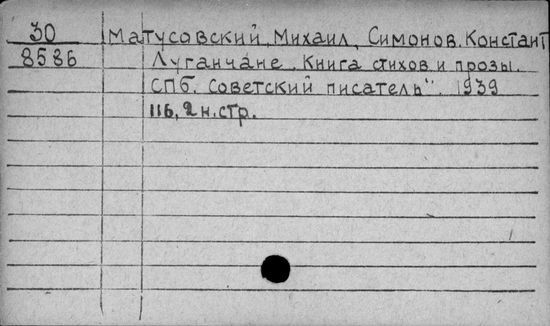 30 Матусовский, Михаил, Симонов. Констант
8586 Луганчане. Книга стихов и прозы.
СПб. Советский писатель". 1939
116, 2 н.стр.